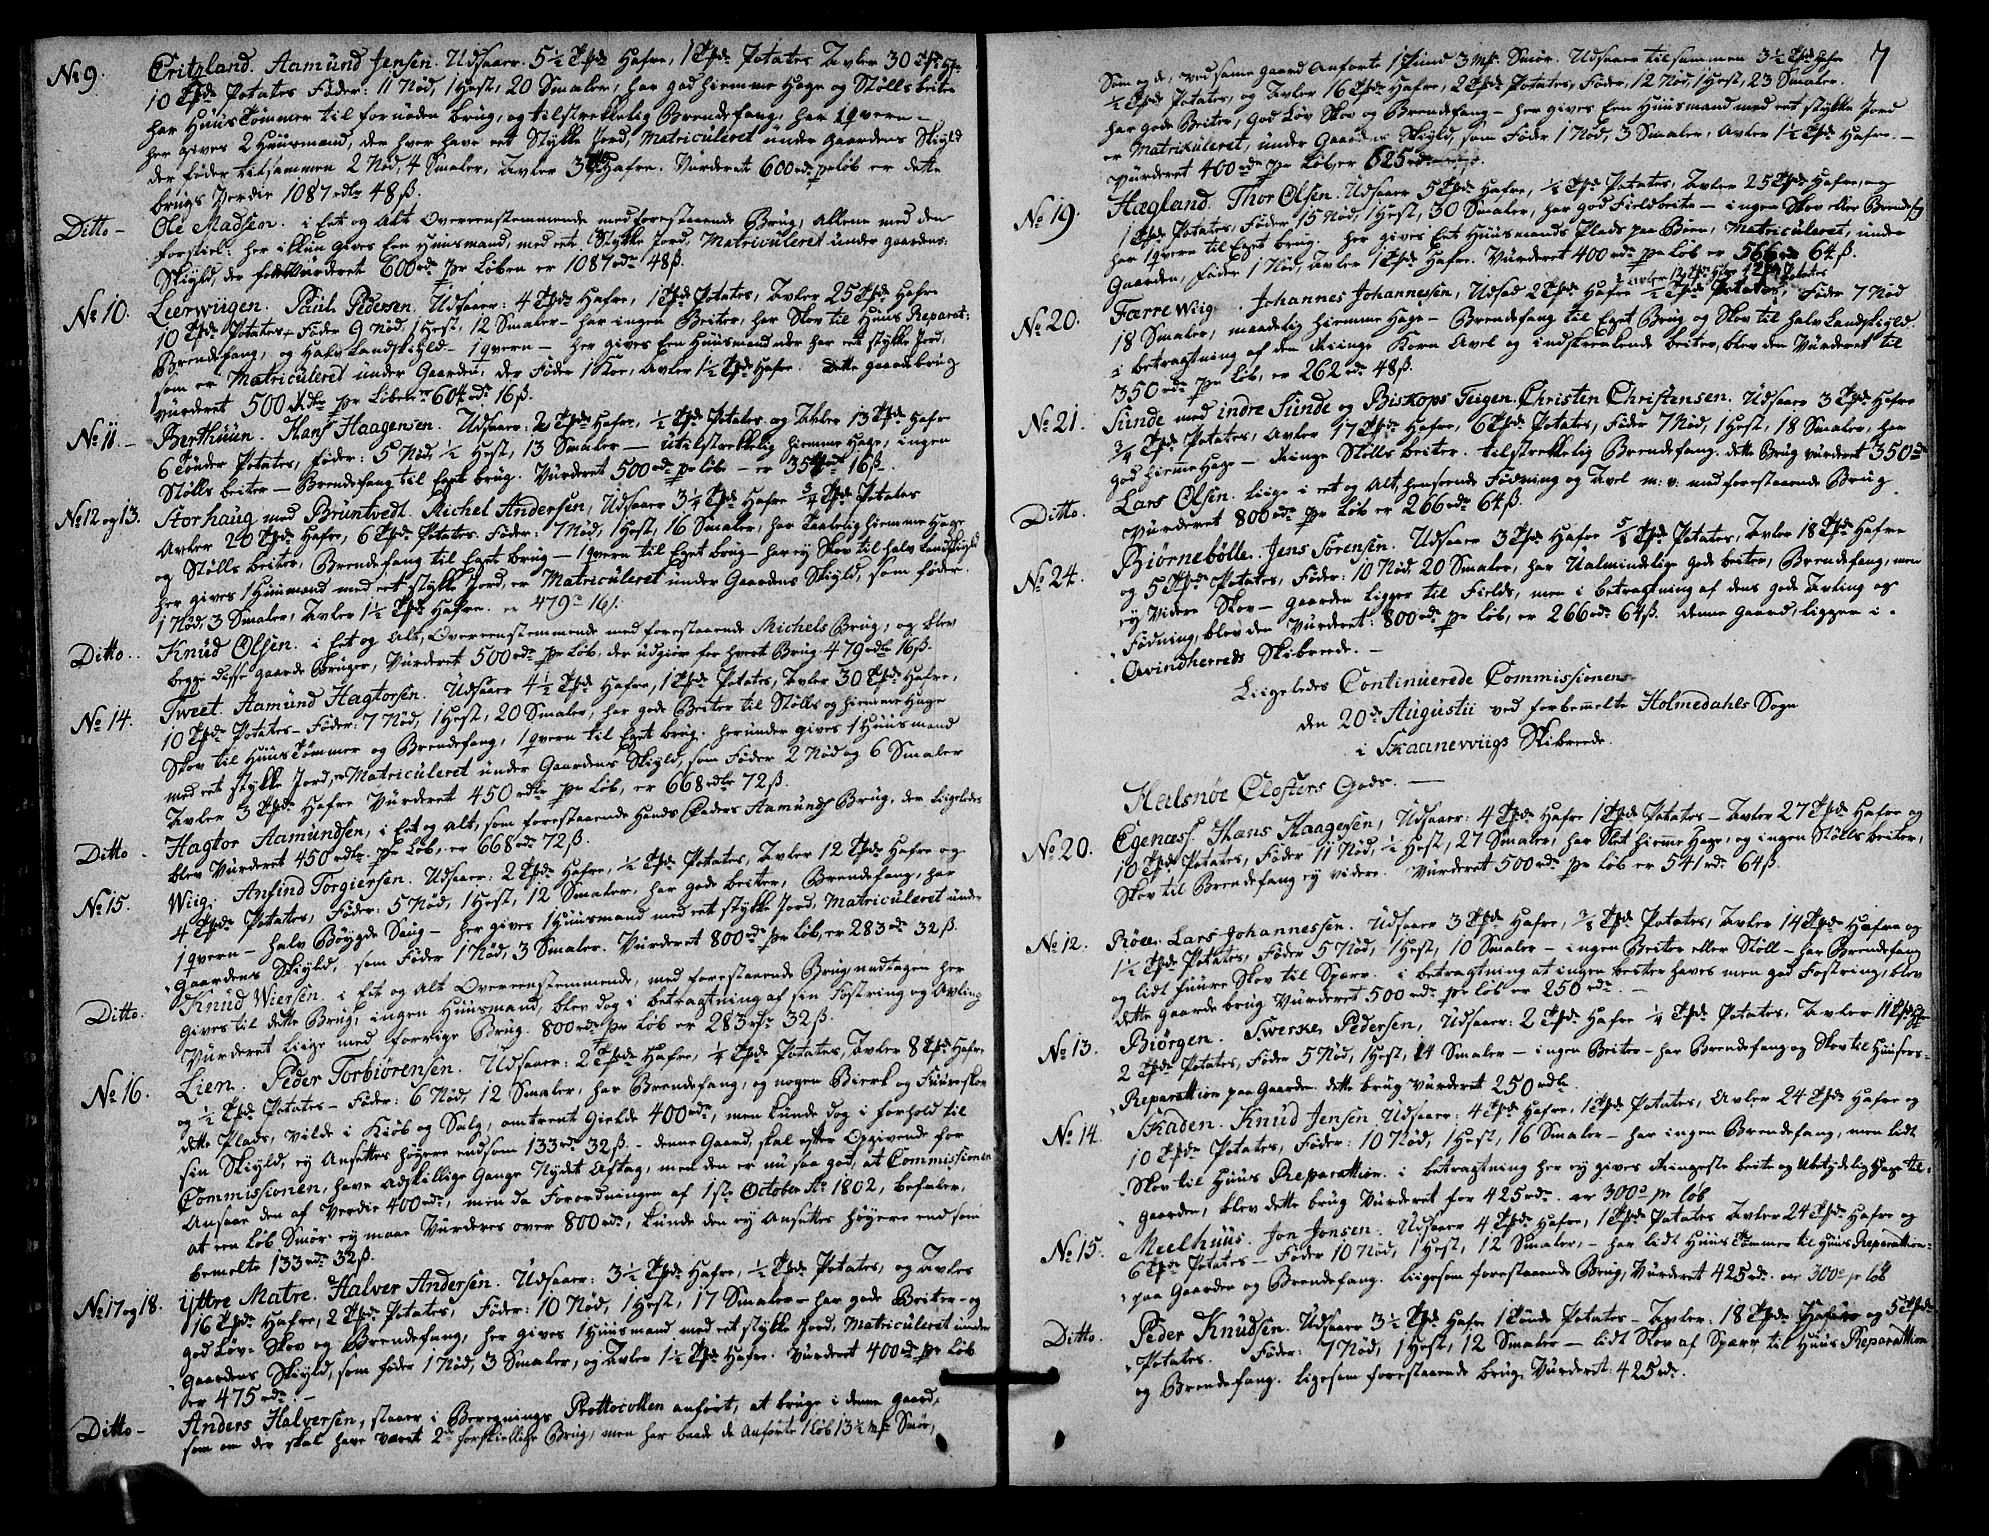 No 9. Critzland. Aamund Jensen. Udsaaer. 5½ Tde Hafre, 1 Tde Potates Avler 30 Tde Hfr
10 Tde Potates Føder: 11 Nød, 1 Hest, 20 Smaler, har god hiemme Hage og Støllsbeite
har Huus Tømmer til fornøden brug, og tilstrekkelig Brendefang, har 1 qvern -
her gives 2 Huusmænd, der hver have eet Stykke Jord, Matriculeret under Gaardens Skyld
der føder tilsammen 2 Nød, 4 Smaler, Avler 3 Tde Hafre. Vurderet 600 rdr pr Løb er dette
brugs Verdie 1087 rdlr 48 ß.
Ditto - Ole Madsen. i Eet og Alt Overeensstemmende med forestaaende Brug, Allene med den
forskiel: her ikkun gives Een Huusmand, med eete Stykke Jord, Matriculeret under gaardens
Skyld, der føder Vurderet 600 rdr pr Løben er 1087 rdr 48 ß.
No 10. Leerwiigen. Paul Pedersen. Udsaaer: 4 Tde Hafre, 1 Tde Potates, Avler 25 Tde Hafre
10 Tde Potates - Føder 9 Nød, 1 Hest, 12 Smaler - har ingen Beiter, har Skov til Huus Reparat:
Brendefang, og Halv Landskyld - 1 qvern - her gives Een Huusmand der har eet stykke Jord,
som er Matriculeret under Gaarden, der Føder 1 Koe, Avler 1½ Tde Hafre. Dette gaardebrug
vurderet 500 Rdr pr Løb er 604 rdr 16 ß.
No 11. - Berthuun. Hans Haagensen. Udsaaer: 2 Tde Hafre, ½ Tde Potates og Avler 13 Tde Hafre
6 Tønder Potates, føder: 5 Nød, ½ Hest, 13 Smaler - utilstrekkelig hiemme Hage, ingen
Stølls beiter - Brendefang til Eget brug. Vurderet 500 rdr pr Løb - er 354 rdr 16 ß.
No 12 og 13. Storhaug med Bruntvedt. Michel Andersen, Udsaaer 3¼ Tde Hafre ¾ Tde Potates
Avler 20 Tde Hafre, 6 Tde Potates. Føder: 7 Nød, 1 Hest, 16 Smaler, har Taalelig hiemme Hage
og Stølls beiter, Brendefang til Eget brug - 1 qvern til Eget brug - har ey Skov til halv Landskyld
her gives 1 Huusmand med eet stykke Jord, er Matriculeret under Gaardens Skyld, som føder
1 Nød, 3 Smaler, Avler 1½ Tde Hafre. er 479 rd 16 ß.
Ditto.. Knud Olsen. i Eet og Alt, Overeensstemmende med forestaaende Michels Brug, og blev
begge disse gaarde Bruger, Vurderet 500 rdr pr Løb, der udgiør for hvert Brug 479 rdlr 16 ß.
No 14. Tweet. Aamund Hagtorsen. Udsaaer 4½ Tde Hafre, 1 Tde Potates, Avler 30 Tde Hafre,
10 Tde Potates - Føder: 7 Nød, 1 Hest, 20 Smaler, har gode Beiter til Stølls og hiemme Hage
Skov til Huus Tømmer og Brendefang, 1 qvern til Eget brug. herunder gives 1 Huusmand
med eet stykke Jord, Matriculeret under Gaardens Skyld, som Føder 2 Nød og 6 Smaler
Avler 3 Tde Hafre Vurderet 450 rdlr pr Løb, er 668 rdlr 72 ß.
Ditto - Hagtor Aamundsen, i Eet og Alt, som forestaaende Hands Faders Aamunds Brug, der liigeledes
blev Vurderet 450 rdlr pr Løb, er 668 rdr 72 ß.
No 15. Wiig. Anfind Torgiersen. Udsaaer: 2 Tde Hafre, ½ Tde Potates, Avler 12 Tde Hafre og
4 Tde Potates, Føder: 5 Nød, 1 Hest, 12 Smaler, har gode beiter, Brendefang, har
1 qvern - halv Bøygde Saug - her gives 1 Huusmand med eet stykke Jord, Matriculeret under
Gaardens Skyld, som Føder 1 Nød, 3 Smaler. Vurderet 800 rdr pr Løb, er 283 rdr 32 ß.
Ditto. Knud Wiersen. i Eet og Alt Overeensstemmende, med forestaaende Brug, undtagen her
gives til dette Brug, ingen Huusmand, blev dog i betragtning af sin Fostring og Avling
Vurderet liige med forrige Brug. 800 rdr pr Løb er 283 rdr 32 ß.
No 16. Lien. Peder Torbiørensen. Udsaaer: 2 Tde Hafre, ¼ Tde Potates, Avler 8 Tde Hafre
og ½ Tde Potates - Føder: 6 Nød, 12 Smaler, har Brendefang, og nogen Bierk og Fuureskov
dette Plads, vilde i Kiøb og Salg, omtrent Gielde 400 rdr, men kunde dog i forhold til
sin Skyld, ey Ansettes høyere end som 133 rdr 32 ß. - denne Gaard, skal efter Opgivende for
Commissionen, have adskillige Gange Nydt Aftag, men den er nu saa god, at Commissionen
Ansaae den af Verdie 400 rdr, men da Forordningen af 1ste October Ao 1802, befaler,
at een Løb Smør ey maae Vurderes over 800 rdr, kunde den ey Ansettes høyere end som
bemelte 133 rdr 32 ß.
No 17 og 18. Yttre Matre. Halver Andersen. Udsaaer: 3½ Tde Hafre, ½ Tde Potates, og Avler
16 Tde Hafre, 2 Tde Potates, Føder: 10 Nød, 1 Hest, 17 Smaler - har gode Beiter - og
god Løv Skov og Brendefang, her gives 1 Huusmand med eet stykke Jord, Matriculeret under
Gaardens Skyld, som føder 1 Nød, 3 Smaler, og Avler 1½ Tde Hafre. Vurderet 400 rdr pr Løb
er 475 rdr -
Ditto - Anders Halversen, staaer i Beregnings Prottocollen anført, at bruge i denne gaard,
som om der skal have været 2de forskiellige Brug, men har baade de Anførte 1 Løb 13½ mk Smør,
7
Som og de, ved samme gaard Anførte 1 Pund 3 Mk Smør. Udsaaer tilsammen 3½ Tde Hafre
½ Tde Potates, og Avler 16 Tde Hafre, 2 Tde Potates, Føder, 12 Nød, 1 Hest, 23 Smaler.
har gode Beiter, god Løv Skov og Brendefang - her gives Een Huusmand med eet stykke Jord
er Matriculeret, under Gaardens Skyld, som Føder 1 Nød, 3 Smaler, Avler 1½ Tde Hafre. -
Vurderet 400 rdr pr Løb, er 625 rdr
No 19. Hægland. Thor Olsen. Udsaaer 5 Tde Hafre, ½ Tde Potates, Avler 25 Tde Hafre, og
1 Tde Potates, Føder 15 Nød, 1 Hest, 30 Smaler, har god Fieldbeite - ingen Skov eller Brendefg
har 1 qvern til Eget brug. her gives Eet Huusmands Plads paa Bøen, Matriculeret, under
Gaarden, Føder 1 Nød, Avler 1 Tde Hafre. Vurderet 400 rdr pr Løb er 566 rdr 64 ß.
Avler 12 Tde Hafre 4 Tde Potates
No 20. Farrewiig. Johannes Johannessen, Udsæd 2 Tde Hafre ½ Tde Potates, Føder 7 Nød
18 Smaler, maadelig hiemme Hage - Brendefang til Eget Brug og Skov til halv Landskyld.
i betragtning af den Ringe Korn Avel og indskrenkende beiter, blev den Vurderet til
350 rdr pr Løb, er 262 rdr 48 ß.
No 21. Sunde med indre Sunde og Biskops Teigen. Christen Christensen. Udsaaer 3 Tde Hafre
¾ Tde Potates, Avler 17 Tde Hafre, 6 Tde Potates, Føder 7 Nød, 1 Hest, 18 Smaler, har
god hiemme Hage - Ringe Stølls beiter. tilstrekkelig Brendefang. dette Brug vurderet 350 rdr
Ditto. Lars Olsen. liige i eet og Alt, henseende Fødning og Avel m: v: med forestaaende Brug
Vurderet 800 rdr pr Løb er 266 rdr 64 ß.
No 24. Biørnebølle. Jens Sørensen. Udsaaer 3 Tde Hafre ⅝ Tde Potates, Avler 18 Tde Hafre
og 5 Tde Potates, Føder: 10 Nød, 20 Smaler, har Ualmindelige gode beiter, Brendefang, men
ey Videre Skov - gaarden ligger til Fields, men i betragtning af dens gode Avling og
Fødning, blev den Vurderet: 800 rdr pr Løb, er 266 rdr 64 ß. denne gaard, ligger i
Qvindherreds Skibrede. -
Liigeledes Continuerede Commissionen
den 20de Augustii ved forbemelte Holmedahls Sogn
i Skaanevviigs Skibrede.
Halsnøe Closters Gods. -
No 20. Egenæss. Hans Haagensen, Udsaaer: 4 Tde Hafre 1 Tde Potates - Avler 27 Tde Hafre og
10 Tde Potates, Føder 11 Nød, ½ Hest, 27 Smaler, har Slet hiemme Hage, og ingen Stølls beiter,
Skov til Brendefang ey videre. Vurderet 500 rdr pr Løb er 541 rdr 64 ß.
No 12. Røen. Lars Johannessen. Udsaaer 3 Tde Hafre, ⅜ Tde Potates, Avler 14 Tde Hafre og
1½ Tde Potates, Føder 5 Nød, 1 Hest, 10 Smaler - ingen Beiter eller Støll - har Brendefang
og lidt fuure Skov til Sparr. i betragtning at ingen beiter haves men god Fostring, blev
dette gaarde brug Vurderet 500 rdr pr Løb er 250 rdr. -
No 13. Biørgen. Swerke Pedersen, Udsaaer: 2 Tde Hafre ¼ Tde Potates, Avler 11 Tde Hfr
2 Tde Potates, Føder 5 Nød, 1 Hest, 14 Smaler - ingen Beiter - har Brendefang og Skov til Huusers
Reparattion paa Gaarden. dette brug Vurderet 250 rdlr.
No 14. Skaden. Knud Jensen. Udsaaer: 4 Tde Hafre, 1 Tde Potates, Avler 24 Tde Hafre og
10 Tde Potates, Føder: 10 Nød, 1 Hest, 16 Smaler - har ingen Brendefang, men lidt
Skov til Huus Reparattion. i betragtning her ey gives Ringeste beite og Ubetydelig Hage til
gaarden, blev dette brug Vurderet for 425 rdr. er 300 rd pr Løb
No 15. Meelhuus. Jon Jonsen. Udsaaer 4 Tde Hafre, 1 Tde Potates Avler 24 Tde Hafre og
6 Tde Potates - Føder 10 Nød, 1 Hest, 12 Smaler, - har lidt Huus Tømmer til Huus Reparattion
paa Gaarden og Brendefang. liigesom forestaaende Brug, Vurderet 425 rdr. er 300 rd pr Løb
Ditto. Peder Knudsen. Udsaaer 3½ Tde Hafre 1 Tønde Potates - Avler: 18 Tde Hafre og 5 Tde
Potates. Føder: 7 Nød, 1 Hest, 12 Smaler - lidt Skov af Sparr til Huus Reparattion
og Brendefang. ligesom forestaaende brug, Vurderet: 425 rdr.